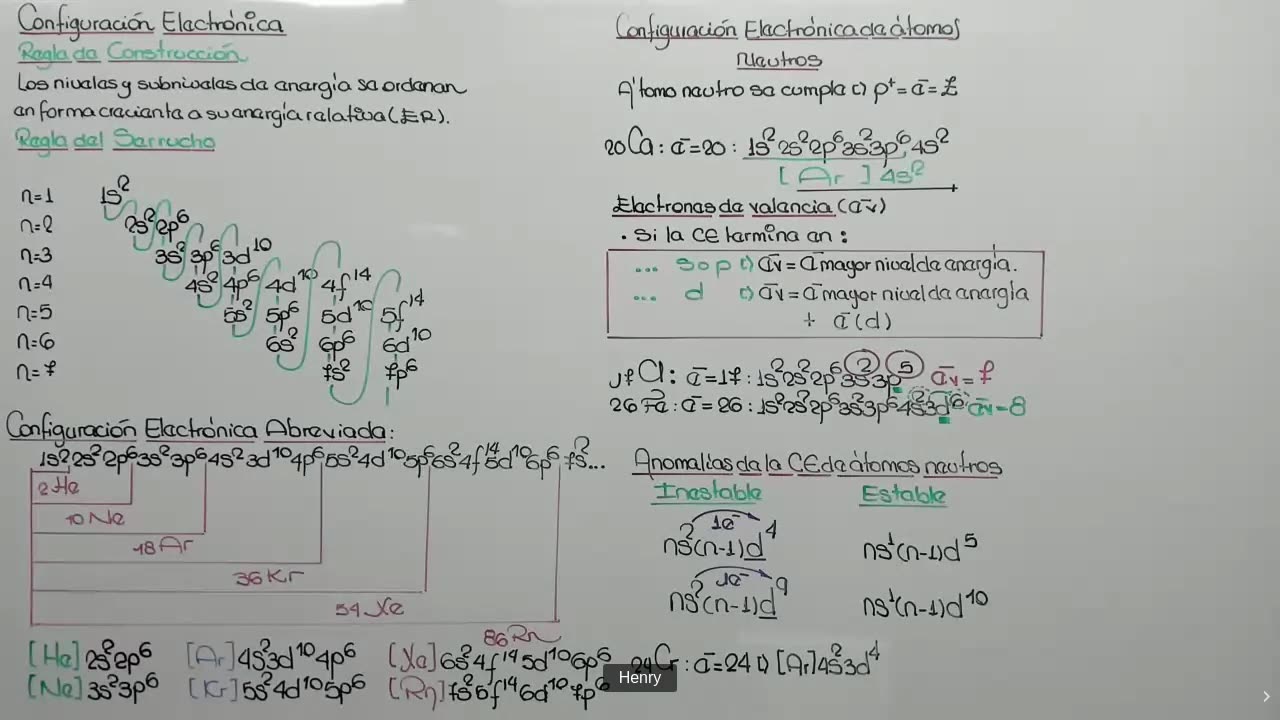 Configuración Electrónica
Regla de Construcción
Los niveles y subniveles de energía se ordenan
en forma creciente a su energía relativa (ER).
Regla del Sarrucho
n=1 1s²
n=2 2s² 2p⁶
n=3 3s² 3p⁶ 3d¹⁰
n=4 4s² 4p⁶ 4d¹⁰ 4f¹⁴
n=5 5s² 5p⁶ 5d¹⁰ 5f¹⁴
n=6 6s² 6p⁶ 6d¹⁰
n=7 7s² 7p⁶
Configuración Electrónica Abreviada:
1s²2s²2p⁶3s²3p⁶4s²3d¹⁰4p⁶5s²4d¹⁰5p⁶6s²4f¹⁴5d¹⁰6p⁶7s²...
2He
10Ne
18Ar
36Kr
54Xe
86Rn
[He]2s²2p⁶ [Ar]4s²3d¹⁰4p⁶ [Xe]6s²4f¹⁴5d¹⁰6p⁶
[Ne]3s²3p⁶ [Kr]5s²4d¹⁰5p⁶ [Rn]7s²5f¹⁴6d¹⁰7p⁶
Configuración Electrónica de átomos
Neutros
Átomo neutro se cumple p⁺=e⁻=Z
20Ca: e⁻=20: 1s²2s²2p⁶3s²3p⁶4s²
[Ar]4s²
Electrones de valencia (e⁻v)
. Si la CE termina en:
... s o p e⁻v = e⁻ mayor nivel de energía.
... d e⁻v = e⁻ mayor nivel de energía
+ e⁻(d)
17Cl: e⁻=17: 1s²2s²2p⁶3s²3p⁵ e⁻v=7
26Fe: e⁻=26: 1s²2s²2p⁶3s²3p⁶4s²3d⁶ e⁻v=8
Anomalías de la CE de átomos neutros
Inestable Estable
1e⁻
ns²(n-1)d⁴ ns¹(n-1)d⁵
1e⁻
ns²(n-1)d⁹ ns¹(n-1)d¹⁰
24Cr: e⁻=24 [Ar]4s²3d⁴
Henry